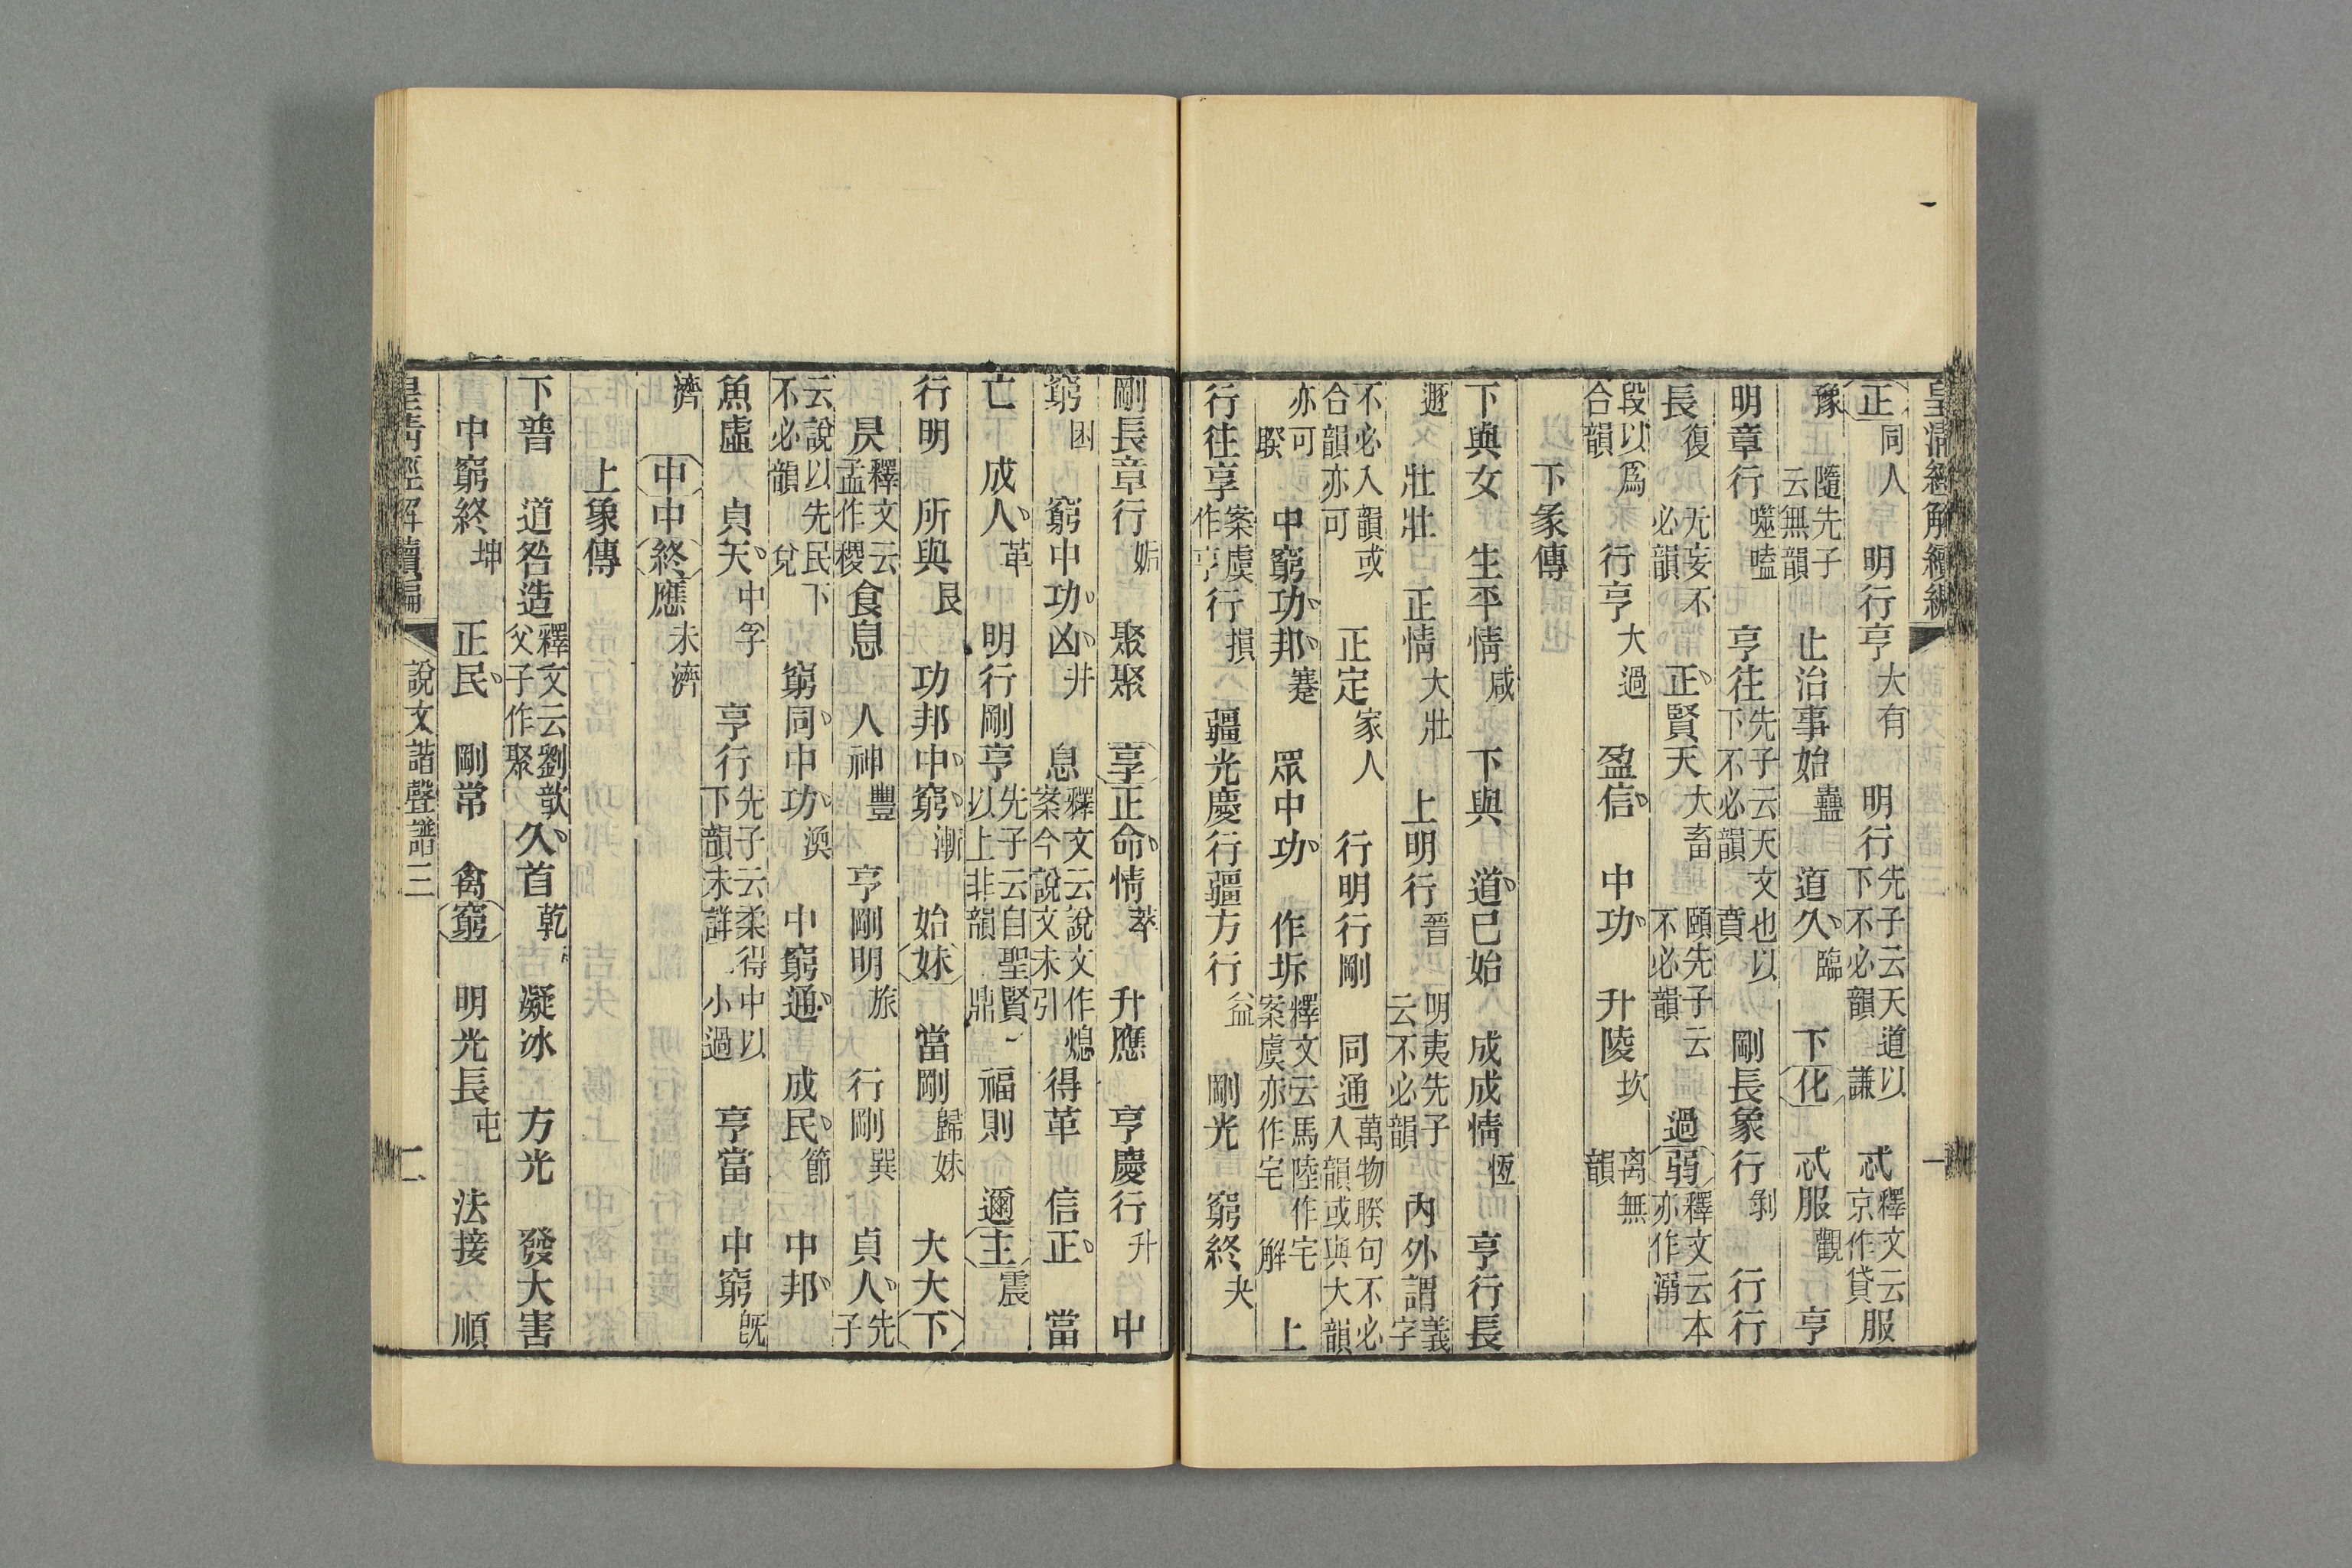 皇清經解續編 一
正同人 明行亨大有 明行先子云天道以下不必韻謙 忒釋文云京作貸服
豫 隨先子云無韻 止治事始蠱 道久臨 下化 忒服觀 亨
明章行噬嗑 亨往先子云天文也以下不必韻賁 剛長象行剝 行行
長復 无妄不必韻 正賢天大畜 頤先子云不必韻 過弱釋文云本亦作溺
段以爲合韻 行亨大過 盈信 中功 升陵坎 离無韻
下彖傳
下與女 生平情咸 下與 道已始 成成情恆 亨行長
遯 壯壯 正情大壯 上明行晉 明夷先子云不必韻 內外謂義字
不必入韻或合韻亦可 正定家人 行明行剛 同通萬物睽句不必入韻或與大韻
亦可睽 中窮功邦蹇 眾中功 作坼釋文云馬陸作宅案虞亦作宅解 上
行往享案虞作亨行損 疆光慶行疆方行益 剛光 窮終夬
剛長章行姤 聚聚 享正命情萃 升應 亨慶行升 中
窮困 窮中功凶井 息釋文云說文作熄案今說文未引得革 信正 當
亡 成人革 明行剛亨先子云自聖賢以上非韻鼎 福則 邇主震
行明 所與艮 功邦中窮漸 始妹 當剛歸妹 大大下
昃釋文云孟作稷食息 人神豐 亨剛明旅 行剛巽 貞人先子
云說以先民下不必韻兌 窮同中功渙 中窮通 成民節 中邦
魚虛 貞天中孚 亨行先子云柔得中以下韻未詳小過 亨當 中窮旣
濟 中中終應未濟
上象傳
下普 道咎造釋文云劉歆父子作聚久首乾 凝冰 方光 發大害
中窮終坤 正民 剛常 禽窮 明光長屯 法接 順
皇清經解續編 說文諧聲譜三 二